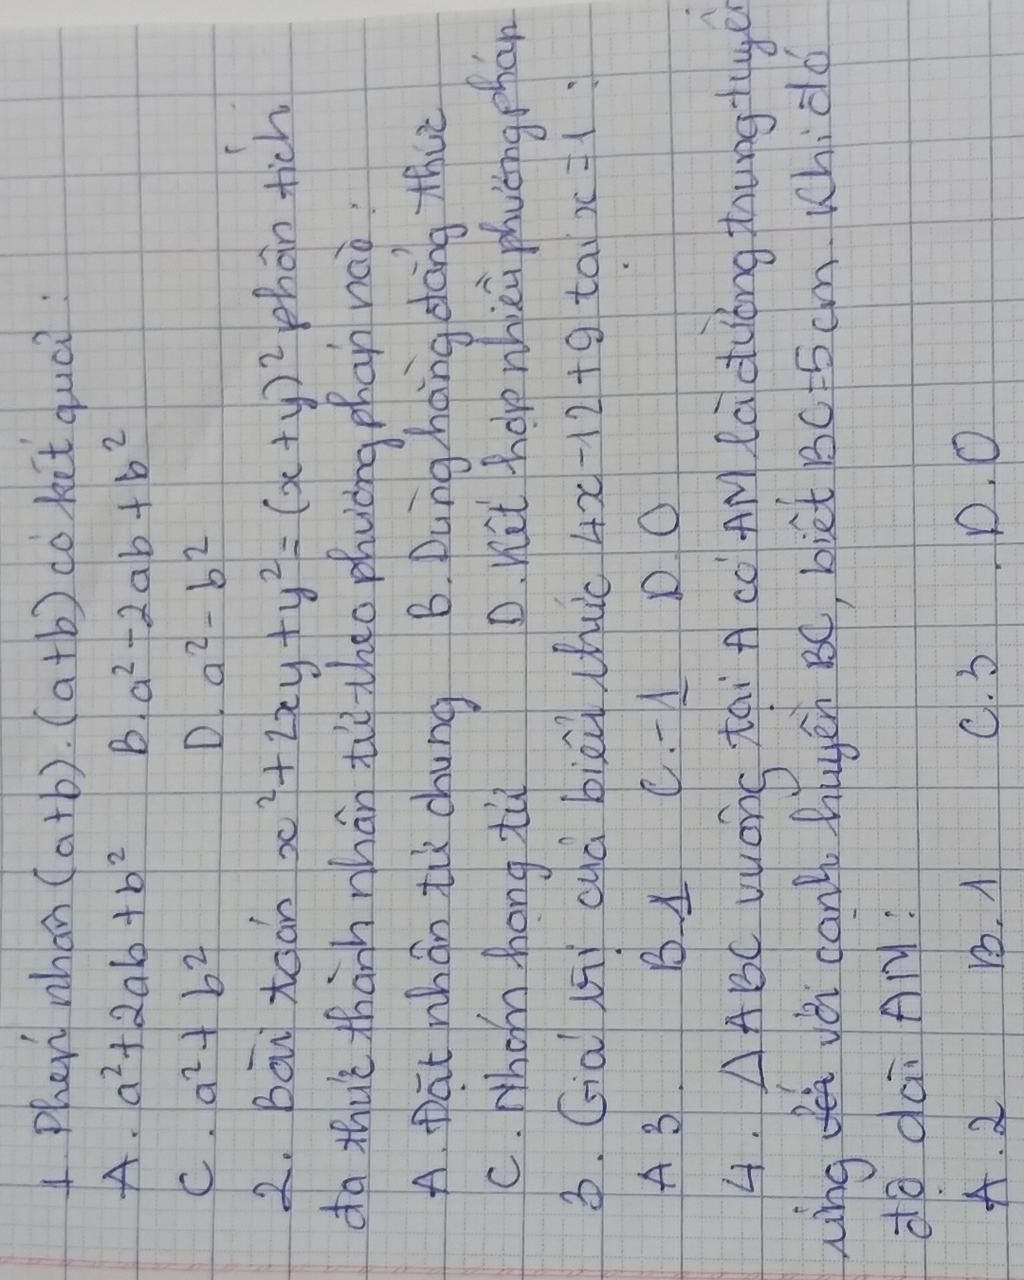 1. Phép nhân (a+b).(a+b) có kết quả:
A. a²+2ab+b² B. a²-2ab+b²
C. a²+b² D. a²-b²
2. Bài toán x²+2xy+y²=(x+y)² phân tích
đa thức thành nhân tử theo phương pháp nào:
A. Đặt nhân tử chung B. Dùng hằng đẳng thức
C. Nhóm hạng tử D. Kết hợp nhiều phương pháp
3. Giá trị của biểu thức 4x-12+9 tại x=1.
A 3 B. 1 C. -1 D. 0
4. Δ ABC vuông tại A có AM là đường trung tuyến
ứng với cạnh huyền BC, biết BC=5cm. Khi đó
độ dài AM:
A. 2 B. 1 C. 3 D. 0